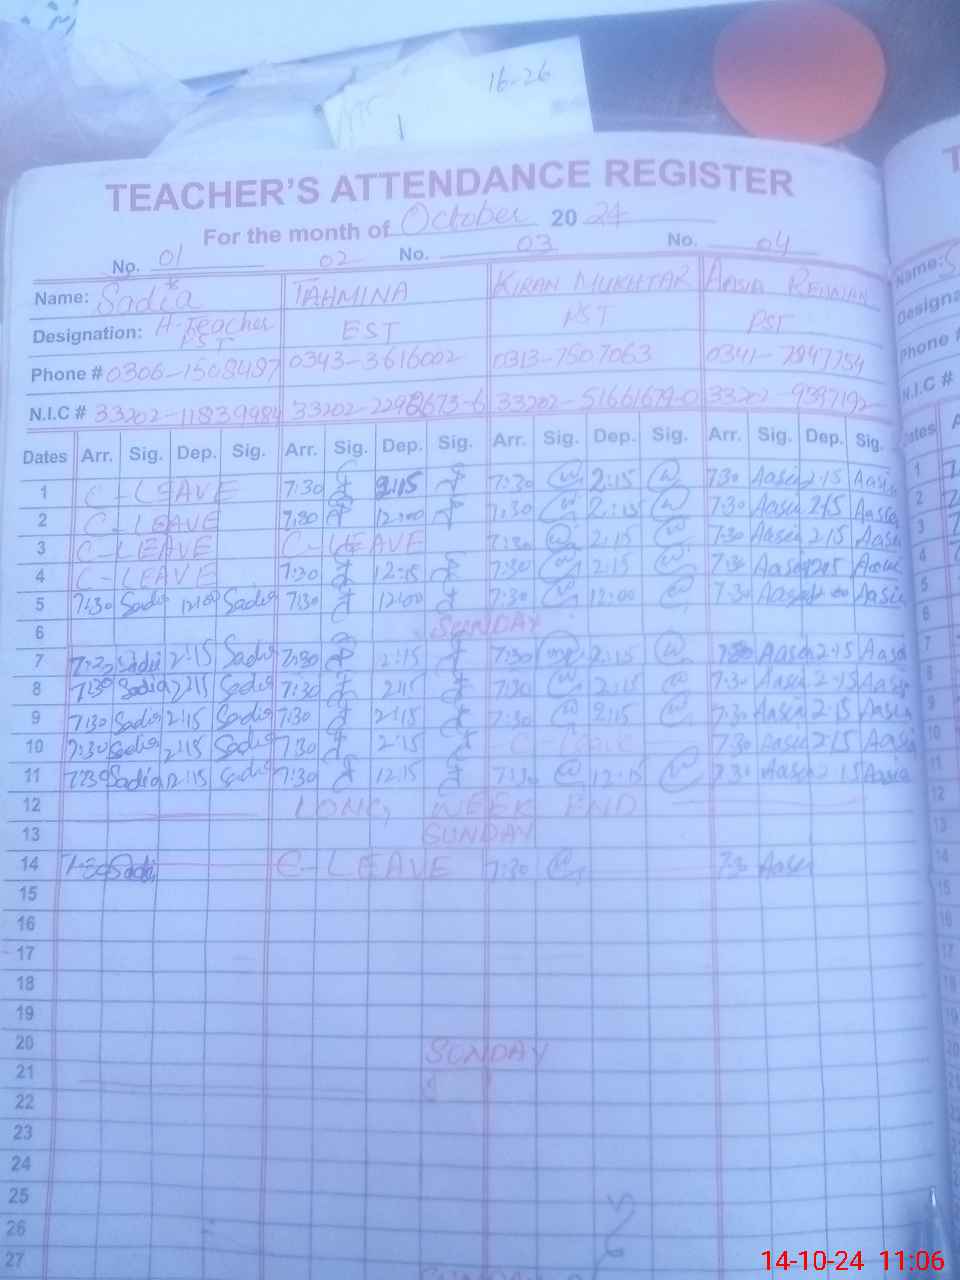 16-26
TEACHER'S ATTENDANCE REGISTER
For the month of October 20 24
No. 01 02 No. 03 No. 04
Name: Sadia TAHMINA KIRAN MUKHTAR AASIA
Designation: H-Teacher EST PST PST
PST
Phone # 0306-1508497 0343-3616002 0313-7507063 0341-7947754
N.I.C # 33202-11839984 33202- 33202-5166167900 33202-9397192-
Dates Arr. Sig. Dep. Sig. Arr. Sig. Dep. Sig. Arr. Sig. Dep. Sig. Arr. Sig. Dep. Sig.
1 C-LEAVE 7:30 2:15 7:30 2:15 7:30 Aasia 2:15 Aasia
2 C-LEAVE 7:30 12:00 7:30 2:15 7:30 Aasia 2:15 Aasia
3 C-LEAVE C-LEAVE 7:30 2:15 7:30 Aasia 2:15 Aasia
4 C-LEAVE 7:30 12:15 7:30 2:15 7:30 Aasia Aasia
5 7:30 Sadia 12:00 Sadia 7:30 12:00 7:30 12:00 7:30 Aasia Aasia
6 SUNDAY
7 7:30 Sadia 2:15 Sadia 7:30 2:15 7:30 2:15 7:30 Aasia 2:15 Aasia
8 7:30 Sadia 2:15 Sadia 7:30 2:15 7:30 2:15 7:30 Aasia 2:15 Aasia
9 7:30 Sadia 2:15 Sadia 7:30 2:15 7:30 2:15 7:30 Aasia 2:15 Aasia
10 7:30 Sadia 2:15 Sadia 7:30 2:15 C-Leave 7:30 Aasia 2:15 Aasia
11 7:30 Sadia 12:15 Sadia 7:30 12:15 7:30 12:15 7:30 Aasia 2:15 Aasia
12 LONG WEEK END
13 SUNDAY
14 7:30 Sadia C-LEAVE 7:30 7:30 Aasia
15
16
17
18
19
20 SUNDAY
21
22
23
24
25
26
27 SUNDAY
14-10-24 11:06